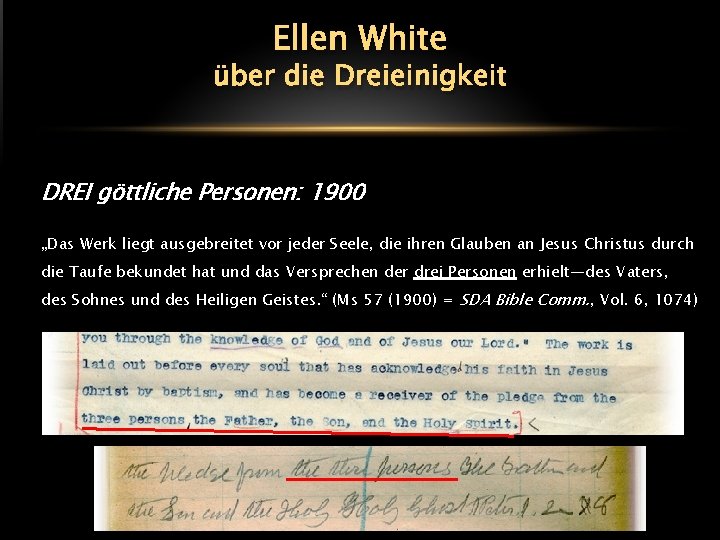 Ellen White
über die Dreieinigkeit
DREI göttliche Personen: 1900
„Das Werk liegt ausgebreitet vor jeder Seele, die ihren Glauben an Jesus Christus durch
die Taufe bekundet hat und das Versprechen der drei Personen erhielt—des Vaters,
des Sohnes und des Heiligen Geistes.“ (Ms 57 (1900) = SDA Bible Comm., Vol. 6, 1074)
you through the knowledge of God and of Jesus our Lord." The work is
laid out before every soul that has acknowledge his faith in Jesus
Christ by baptism, and has become a receiver of the pledge from the
three persons, the Father, the Son, and the Holy spirit.
the pledge from the three persons the Father and
the Son and the Holy Holy Ghost